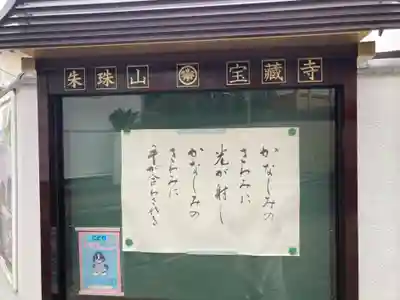 朱珠山 宝蔵寺
かなしみの
きわみに
光が射し
かなしみの
きわみに
手が合わされる